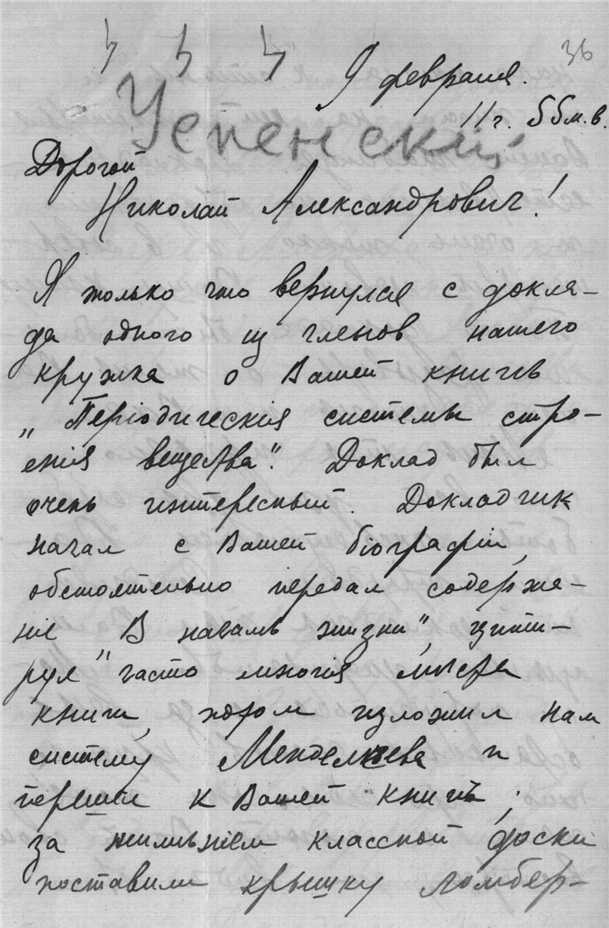 36
9 февраля.
11 г. Б б м. в.
Успенский
Дорогой
Николай Александрович!
Я только что вернулся с докла-
да одного из членов нашего
кружка о Вашей книгѣ
„Періодическія системы стро-
енія вещества". Доклад был
очень интересный. Докладчик
начал с Вашей біографіи,
обстоятельно передал содержа-
ніе „В началѣ жизни", цити-
руя часто многія мѣста
книги, потом изложил нам
систему Менделѣева и
перешел к Вашей книгѣ;
за неимѣніем классной доски
поставили крышку ломбер-